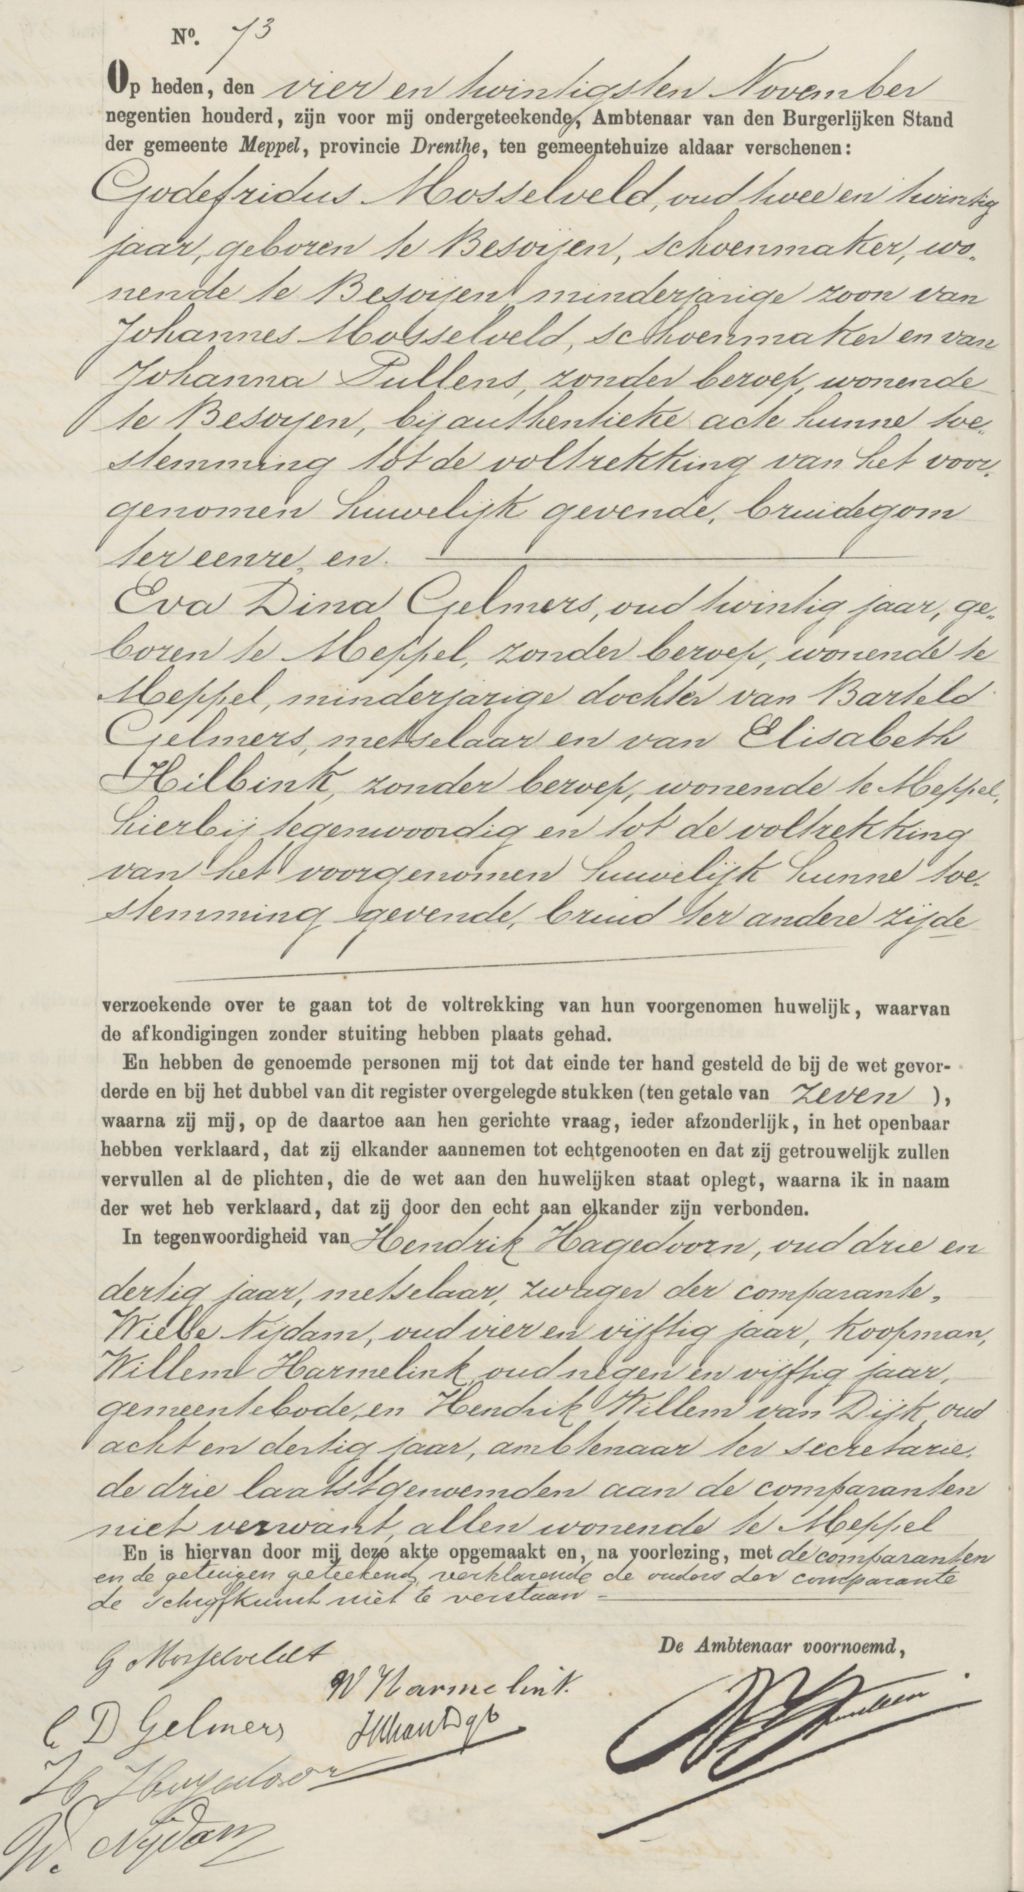 Nº. 73
Op heden, den vier en twintigsten November
negentien honderd, zijn voor mij ondergeteekende, Ambtenaar van den Burgerlijken Stand
der gemeente Meppel, provincie Drenthe, ten gemeentehuize aldaar verschenen:
Godefridus Mosselveld, oud twee en twintig
jaar, geboren te Besoijen, schoenmaker, wo-
nende te Besoijen minderjarige zoon van
Johannes Mosselveld, schoenmaker en van
Johanna Pullens, zonder beroep, wonende
te Besoijen, bij authentieke acte hunne toe-
stemming tot de voltrekking van het voor-
genomen huwelijk gevende, bruidegom
ter eenre, en.
Eva Dina Gelmers, oud twintig jaar, ge-
boren te Meppel, zonder beroep, wonende te
Meppel, minderjarige dochter van Barteld
Gelmers, metselaar en van Elisabeth
Hilbink, zonder beroep, wonende te Meppel,
hierbij tegenwoordig en tot de voltrekking
van het voorgenomen huwelijk hunne toe-
stemming gevende, bruid ter andere zijde
verzoekende over te gaan tot de voltrekking van hun voorgenomen huwelijk, waarvan
de afkondigingen zonder stuiting hebben plaats gehad.
En hebben de genoemde personen mij tot dat einde ter hand gesteld de bij de wet gevor-
derde en bij het dubbel van dit register overgelegde stukken (ten getale van zeven ),
waarna zij mij, op de daartoe aan hen gerichte vraag, ieder afzonderlijk, in het openbaar
hebben verklaard, dat zij elkander aannemen tot echtgenooten en dat zij getrouwelijk zullen
vervullen al de plichten, die de wet aan den huwelijken staat oplegt, waarna ik in naam
der wet heb verklaard, dat zij door den echt aan elkander zijn verbonden.
In tegenwoordigheid van Hendrik Hagedoorn, oud drie en
dertig jaar, metselaar, zwager der comparante,
Wiebe Nijdam, oud vier en vijftig jaar, koopman,
Willem Harmelink oud negen en vijftig jaar,
gemeentebode, en Hendrik Willem van Dijk, oud
acht en dertig jaar, ambtenaar ter secretarie,
de drie laatstgenoemden aan de comparanten
niet verwant, allen wonende te Meppel
En is hiervan door mij deze akte opgemaakt en, na voorlezing, met de comparanten
en de getuigen geteekend, verklarende de ouders der comparante
de schrijfkunst niet te verstaan
De Ambtenaar voornoemd,
G Mosselveldt
W Harmelink.
E D Gelmers
HWvanDijk
H Hagedoor
W. Nijdam